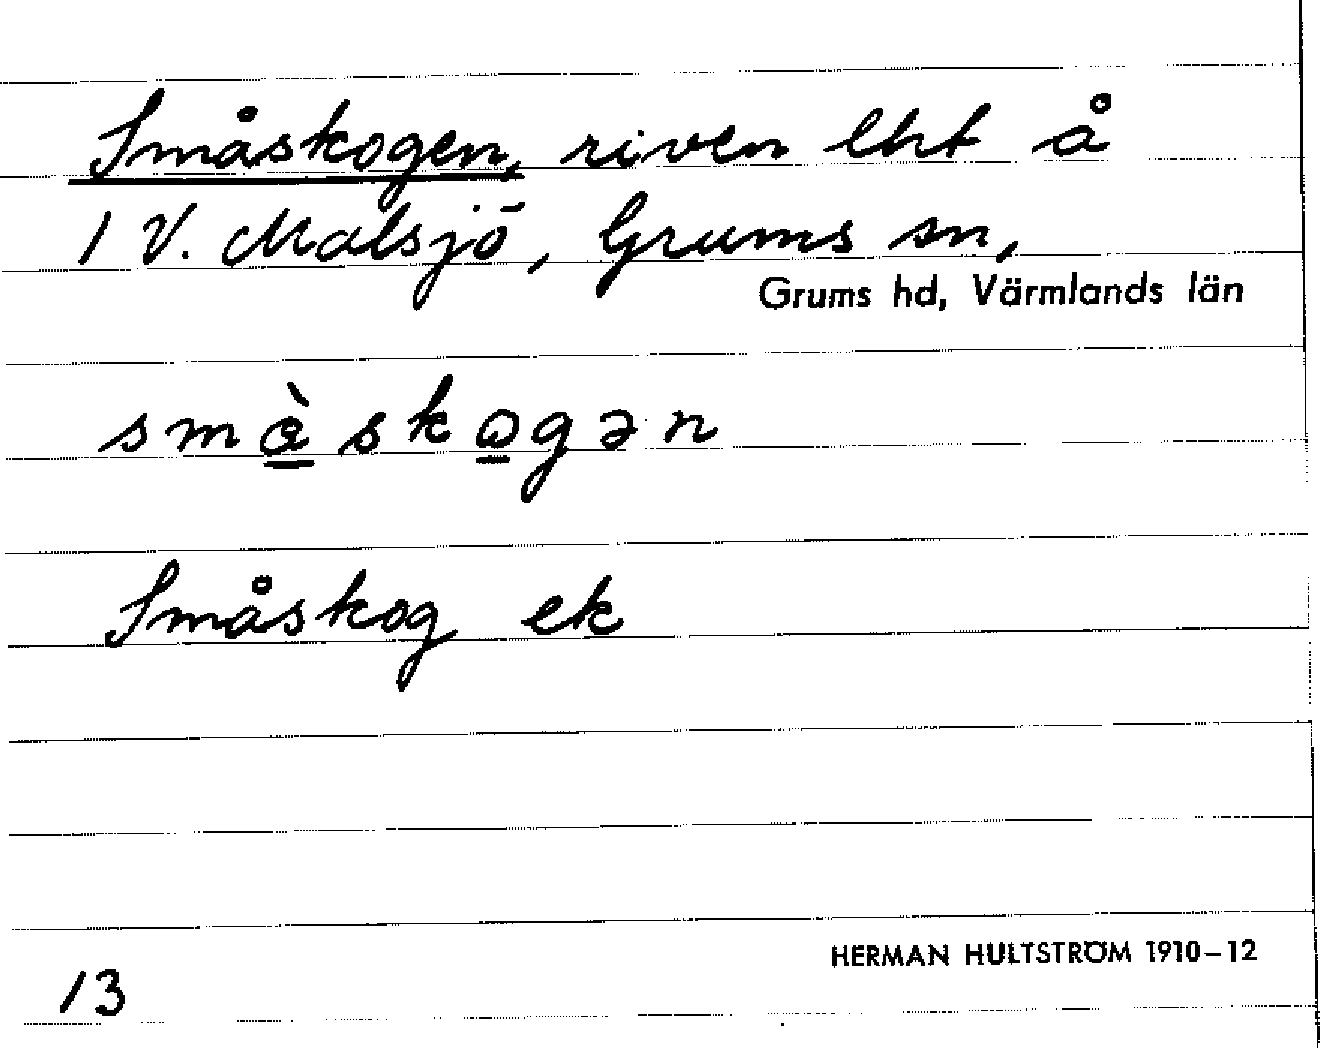 Småskogen, riven lht å
1 V. Malsjö, Grums sn,
Grums hd, Värmlands län
småskogən
Småskog ek
HERMAN HULTSTRÖM 1910–12
13